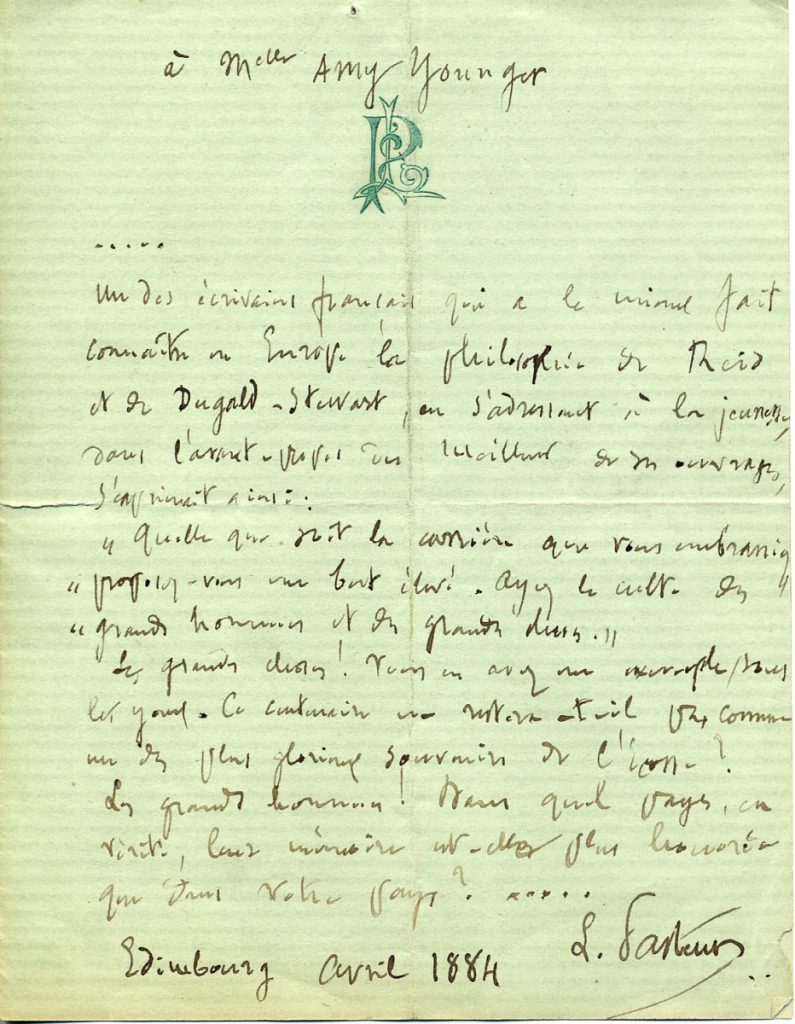 à Melle Amy Younger
LP
.....
Un des écrivains français qui a le mieux fait
connaître en Europe la philosophie de Reid
et de Dugald-Stewart, en s'adressant à la jeunesse,
dans l'avant-propos du meilleur de ses ouvrages,
s'exprimait ainsi:
" Quelle que soit la carrière que vous embrassiez
" proposez-vous un but élevé. Ayez le culte des "
" grands hommes et des grandes choses. "
Les grandes choses! Vous en avez un exemple sous
les yeux. Ce centenaire ne restera-t-il pas comme
un des plus glorieux souvenirs de l'Écosse?
Les grands hommes! Dans quel pays, en
vérité, leur mémoire est-elle plus honorée
que dans votre pays? .....
L. Pasteur
Edimbourg Avril 1884